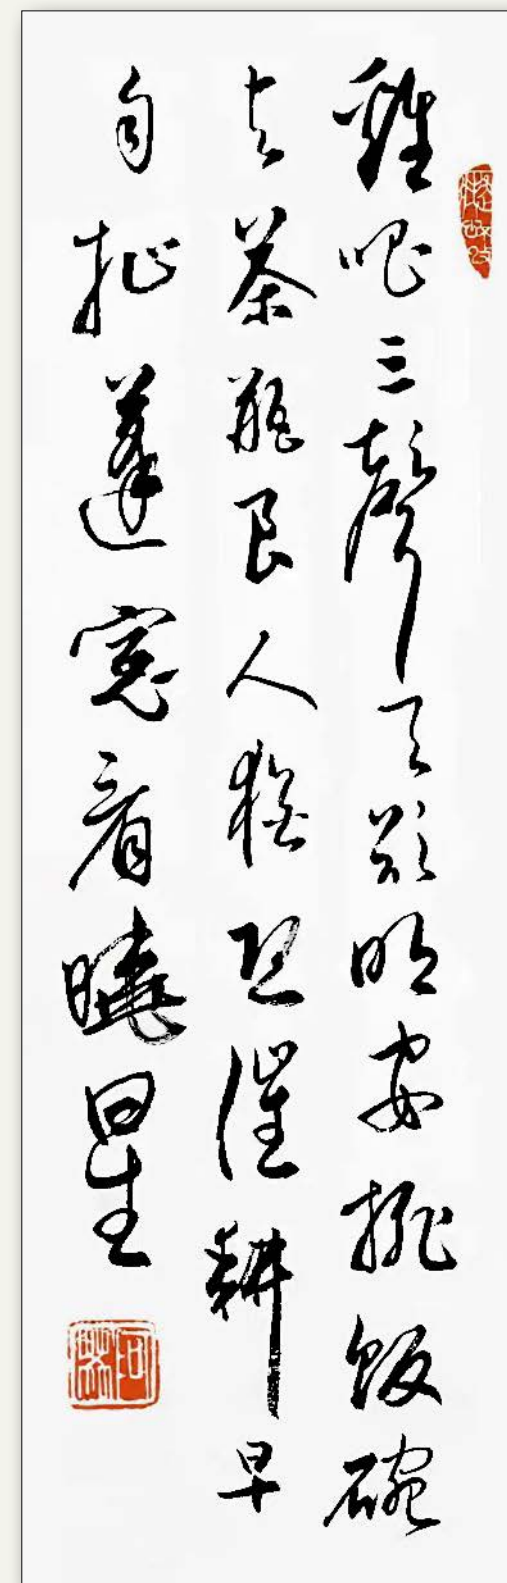 雞唱三聲天欲明安排飯碗
与茶瓶良人猶恐催耕早
自扯蓬窓看曉星